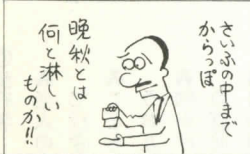 さいふの中まで
からっぽ
晩秋とは
何と淋しい
ものか!!